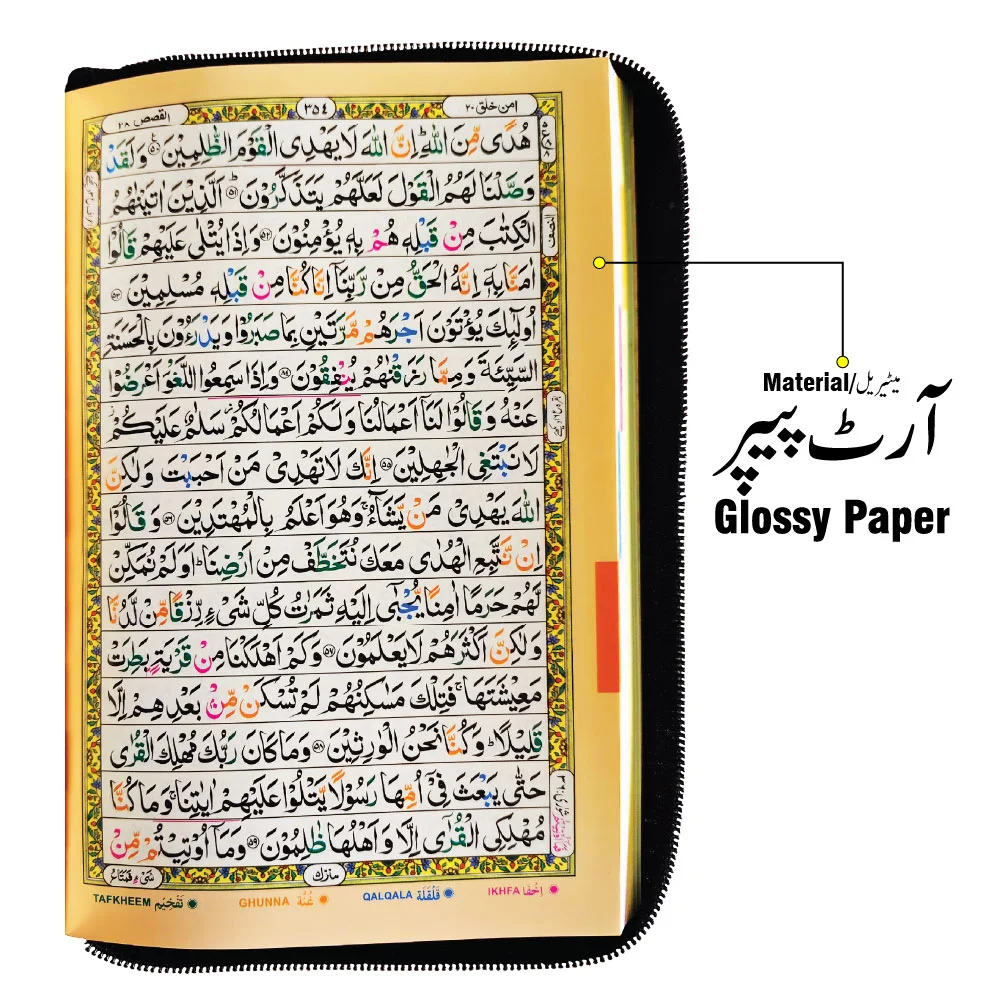 امن خلق ٢٠
٣٥٤
القصص ٢٨
هُدًى مِّنَ اللّٰهِ ؕ اِنَّ اللّٰهَ لَا يَهْدِى الْقَوْمَ الظّٰلِمِيْنَ ﴿٥٠﴾ وَلَقَدْ
وَصَّلْنَا لَهُمُ الْقَوْلَ لَعَلَّهُمْ يَتَذَكَّرُوْنَ ؕ ﴿٥١﴾ اَلَّذِيْنَ اٰتَيْنٰهُمُ
الْكِتٰبَ مِنْ قَبْلِهٖ هُمْ بِهٖ يُؤْمِنُوْنَ ﴿٥٢﴾ وَاِذَا يُتْلٰى عَلَيْهِمْ قَالُوْٓا
اٰمَنَّا بِهٖٓ اِنَّهُ الْحَقُّ مِنْ رَّبِّنَآ اِنَّا كُنَّا مِنْ قَبْلِهٖ مُسْلِمِيْنَ ﴿٥٣﴾
اُولٰٓئِكَ يُؤْتَوْنَ اَجْرَهُمْ مَّرَّتَيْنِ بِمَا صَبَرُوْا وَيَدْرَءُوْنَ بِالْحَسَنَةِ
السَّيِّئَةَ وَمِمَّا رَزَقْنٰهُمْ يُنْفِقُوْنَ ﴿٥٤﴾ وَاِذَا سَمِعُوا اللَّغْوَ اَعْرَضُوْا
عَنْهُ وَقَالُوْا لَنَآ اَعْمَالُنَا وَلَكُمْ اَعْمَالُكُمْ سَلٰمٌ عَلَيْكُمْ
لَا نَبْتَغِى الْجٰهِلِيْنَ ﴿٥٥﴾ اِنَّكَ لَا تَهْدِىْ مَنْ اَحْبَبْتَ وَلٰكِنَّ
اللّٰهَ يَهْدِىْ مَنْ يَّشَآءُ ۚ وَهُوَ اَعْلَمُ بِالْمُهْتَدِيْنَ ﴿٥٦﴾ وَقَالُوْٓا
اِنْ نَّتَّبِعِ الْهُدٰى مَعَكَ نُتَخَطَّفْ مِنْ اَرْضِنَا ؕ اَوَلَمْ نُمَكِّنْ
لَّهُمْ حَرَمًا اٰمِنًا يُّجْبٰٓى اِلَيْهِ ثَمَرٰتُ كُلِّ شَىْءٍ رِّزْقًا مِّنْ لَّدُنَّا
وَلٰكِنَّ اَكْثَرَهُمْ لَا يَعْلَمُوْنَ ﴿٥٧﴾ وَكَمْ اَهْلَكْنَا مِنْ قَرْيَةٍۭ بَطِرَتْ
مَعِيْشَتَهَا ۚ فَتِلْكَ مَسٰكِنُهُمْ لَمْ تُسْكَنْ مِّنْۢ بَعْدِهِمْ اِلَّا
قَلِيْلًا ؕ وَكُنَّا نَحْنُ الْوٰرِثِيْنَ ﴿٥٨﴾ وَمَا كَانَ رَبُّكَ مُهْلِكَ الْقُرٰى
حَتّٰى يَبْعَثَ فِىْٓ اُمِّهَا رَسُوْلًا يَّتْلُوْا عَلَيْهِمْ اٰيٰتِنَا ۚ وَمَا كُنَّا
مُهْلِكِى الْقُرٰٓى اِلَّا وَاَهْلُهَا ظٰلِمُوْنَ ﴿٥٩﴾ وَمَآ اُوْتِيْتُمْ مِّنْ
النصف
منزل ٥
شَىْءٍ فَمَتَاعُ
IKHFA اِخْفَا
QALQALA قَلْقَلَة
GHUNNA غُنَّة
TAFKHEEM تَفْخِيْم
Material/میٹیریل
آرٹ پیپر
Glossy Paper